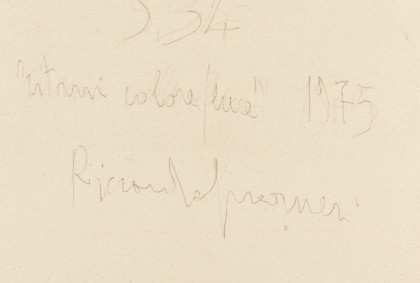 534
"ritmi colore/luce" 1975
Riccardo Guarneri